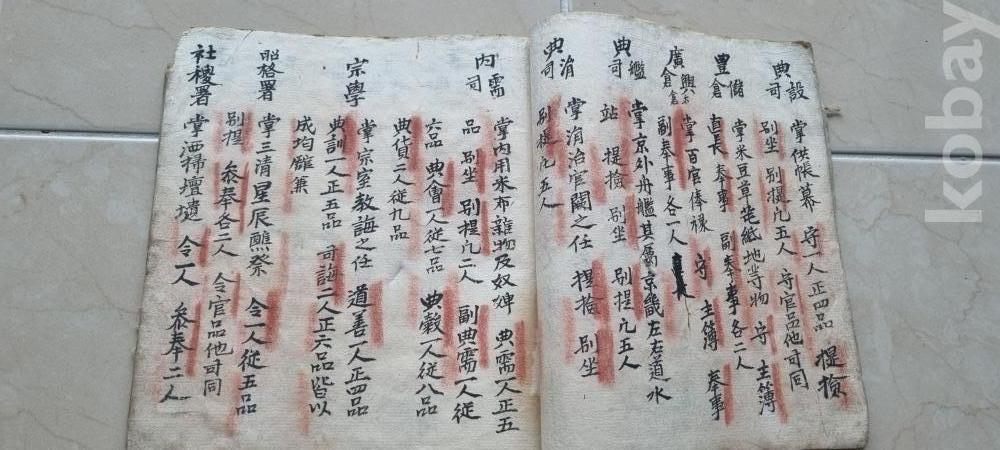 典設司 掌供帳幕 守一人正四品 提檢
別坐 別提凡五人 守官品他司同
豊儲倉 掌米豆草芚紙地等物 守 主簿
直長 奉事 副奉事各二人
廣興倉 掌百官俸祿 守 主簿 奉事
副奉事各一人
典艦司 掌京外舟艦其屬京畿左右道水
站 提檢 別坐 別提凡五人
典涓司 掌涓治官闕之任 提檢 別坐
別提凡五人
內需司 掌內用米布雜物及奴婢 典需一人正五
品 別坐 別提凡二人 副典需一人從
六品 典會一人從七品 典穀一人從八品
典貨二人從九品
宗學 掌宗室教誨之任 道善一人正四品
典訓一人正五品 司誨二人正六品皆以
成均館兼
昭格署 掌三清星辰醮祭 令一人從五品
別提 叅奉各二人 令官品他司同
社稷署 掌洒掃壇壝 令一人 叅奉二人
kobay